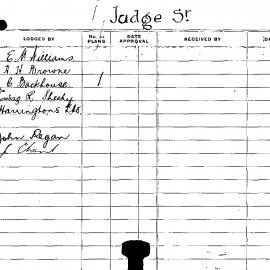 Judge St
LODGED BY No. of PLANS DATE APPROVAL RECEIVED BY
E. A. Williams
A. H. Browne
C. Backhouse 1
R. Sheehy
Harringtons Ltd.
John Regan
J. Chant